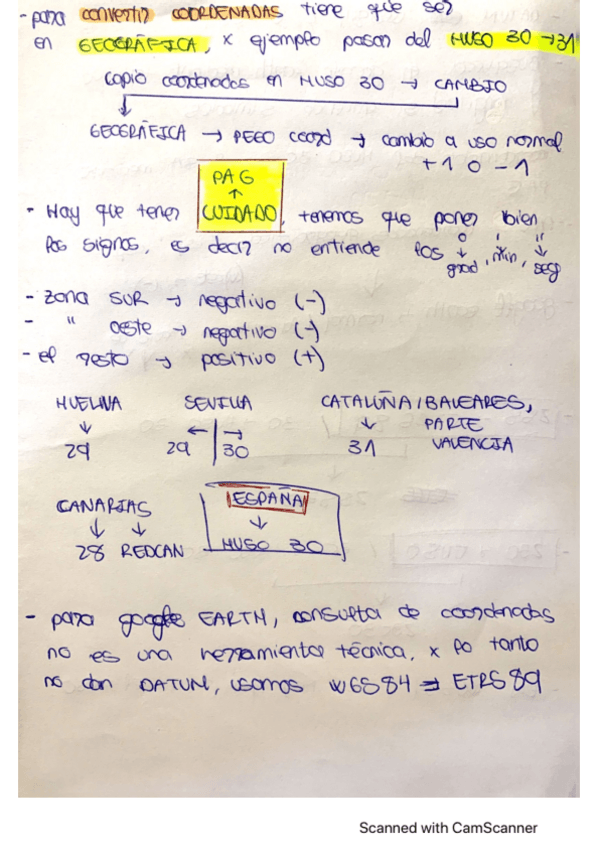 - para convertir COORDENADAS tiene que ser
en GEOGRÁFICA, x ejemplo pasar del HUSO 30 → 31
copio coordenadas en HUSO 30 → CAMBIO
GEOGRÁFICA → PEGO coord → cambio a uso normal
+1 o -1
PAG
↑
- Hay que tener CUIDADO, tenemos que poner bien
los signos, es decir no entiende los
o ' "
grad, min, seg
- zona SUR → negativo (-)
- " oeste → negativo (-)
- el resto → positivo (+)
HUELVA SEVILLA CATALUÑA/BALEARES,
29 29 ← | → 30 31 PARTE
VALENCIA
CANARIAS ESPAÑA
28 REDCAN HUSO 30
- para google EARTH, consulta de coordenadas
no es una herramienta técnica, x lo tanto
no dan DATUM, usamos WGS84 = ETRS89
Scanned with CamScanner